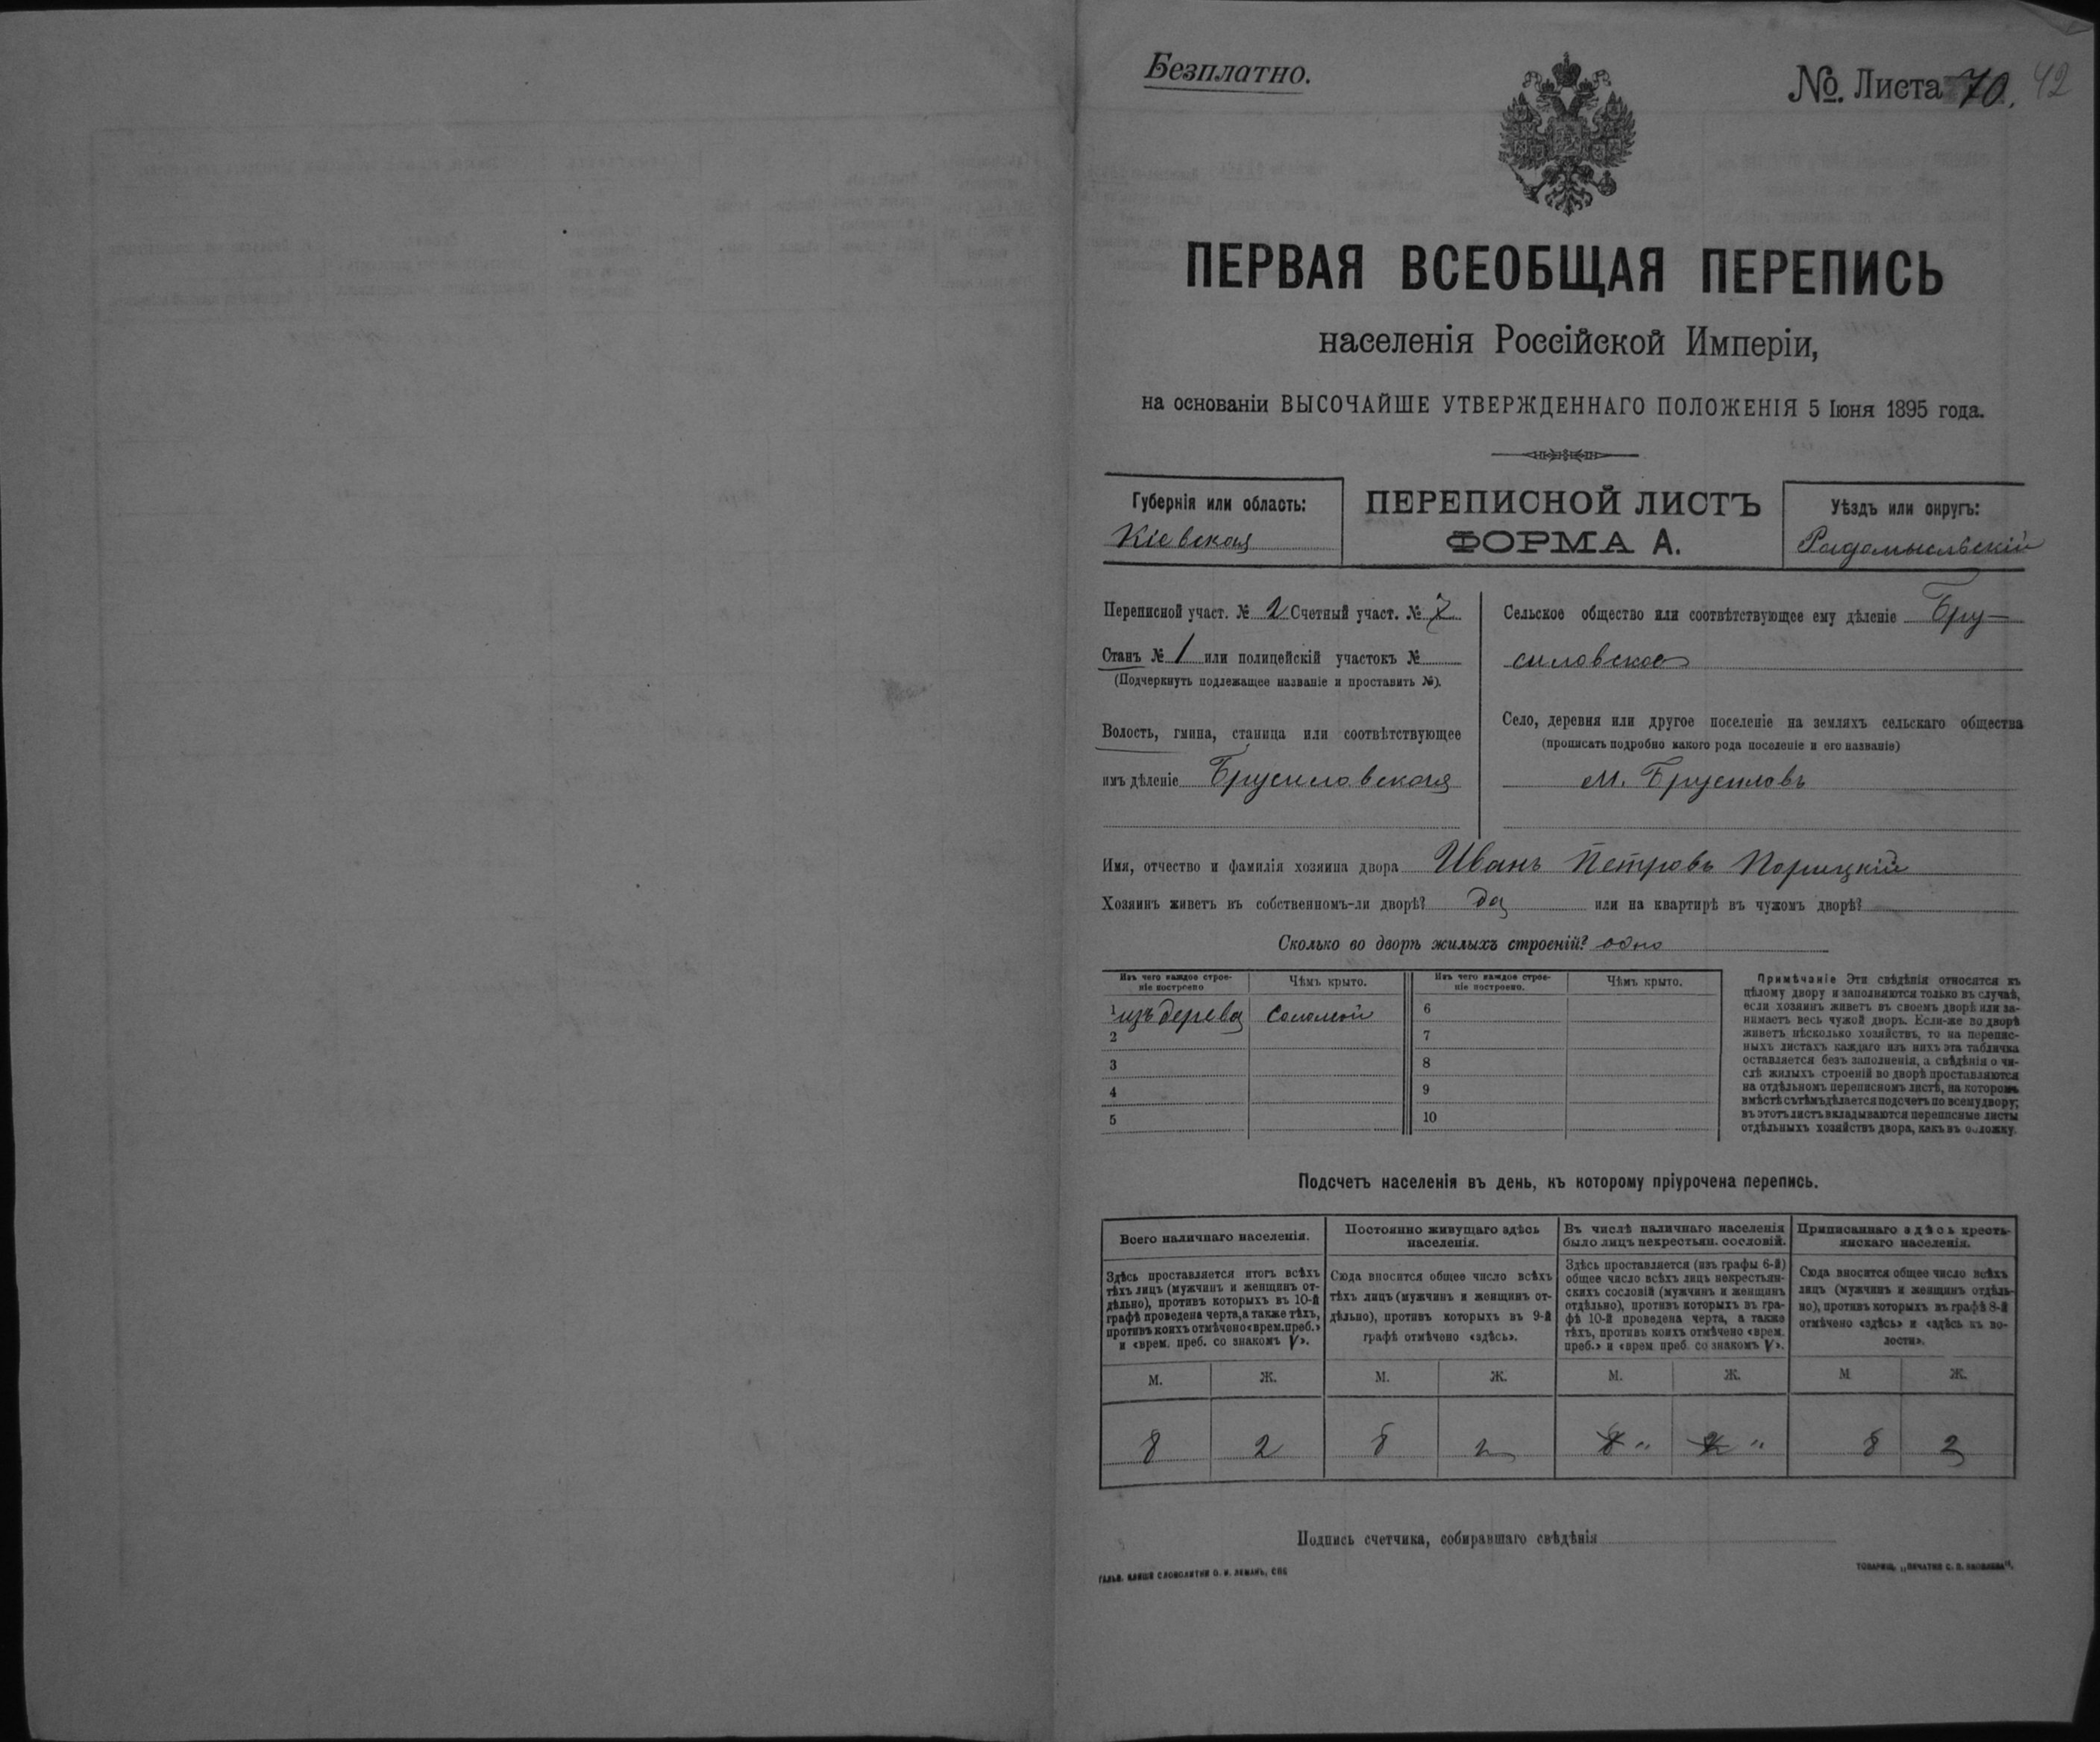 Безплатно.
№ Листа 70. 42
ПЕРВАЯ ВСЕОБЩАЯ ПЕРЕПИСЬ
населенія Россійской Имперіи,
на основаніи ВЫСОЧАЙШЕ УТВЕРЖДЕННАГО ПОЛОЖЕНІЯ 5 Іюня 1895 года.
Губернія или область:
Кіевская
ПЕРЕПИСНОЙ ЛИСТЪ
ФОРМА А.
Уѣздъ или округъ:
Радомысльскій
Переписной участ. № 2 Счетный участ. № 7
Станъ № 1 или полицейскій участокъ №
(Подчеркнуть подлежащее названіе и проставить №).
Волость, гмина, станица или соотвѣтствующее
имъ дѣленіе Брусиловская
Сельское общество или соотвѣтствующее ему дѣленіе Бру-
силовское
Село, деревня или другое поселеніе на земляхъ сельскаго общества
(прописать подробно какого рода поселеніе и его названіе)
м. Брусиловъ
Имя, отчество и фамилія хозяина двора Иванъ Петровъ Порицкій
Хозяинъ живетъ въ собственномъ-ли дворѣ? да или на квартирѣ въ чужомъ дворѣ?
Сколько во дворѣ жилыхъ строеній? одно
Изъ чего каждое строе-
ніе построено
Чѣмъ крыто.
Изъ чего каждое строе-
ніе построено.
Чѣмъ крыто.
1 изъ дерева соломой 6
2 7
3 8
4 9
5 10
Примѣчаніе Эти свѣдѣнія относятся къ
цѣлому двору и заполняются только въ случаѣ,
если хозяинъ живетъ въ своемъ дворѣ или за-
нимаетъ весь чужой дворъ. Если-же во дворѣ
живетъ нѣсколько хозяйствъ, то на перепис-
ныхъ листахъ каждаго изъ нихъ эта табличка
оставляется безъ заполненія, а свѣдѣнія о чи-
слѣ жилыхъ строеній во дворѣ проставляются
на отдѣльномъ переписномъ листѣ, на которомъ
вмѣстѣ съ тѣмъ дѣлается подсчетъ по всему двору;
въ этотъ листъ вкладываются переписные листы
отдѣльныхъ хозяйствъ двора, какъ въ обложку.
Подсчетъ населенія въ день, къ которому пріурочена перепись.
Всего наличнаго населенія.
Здѣсь проставляется итогъ всѣхъ
тѣхъ лицъ (мужчинъ и женщинъ от-
дѣльно), противъ которыхъ въ 10-й
графѣ проведена черта, а также тѣхъ,
противъ коихъ отмѣчено «врем. преб.»
и «врем. преб. со знакомъ V».
Постоянно живущаго здѣсь
населенія.
Сюда вносится общее число всѣхъ
тѣхъ лицъ (мужчинъ и женщинъ от-
дѣльно), противъ которыхъ въ 9-й
графѣ отмѣчено «здѣсь».
Въ числѣ наличнаго населенія
было лицъ некрестьян. сословій.
Здѣсь проставляется (изъ графы 6-й)
общее число всѣхъ лицъ некрестьян-
скихъ сословій (мужчинъ и женщинъ
отдѣльно), противъ которыхъ въ гра-
фѣ 10-й проведена черта, а также
тѣхъ, противъ коихъ отмѣчено «врем.
преб.» и «врем преб. со знакомъ V».
Приписаннаго здѣсь кресть-
янскаго населенія.
Сюда вносится общее число всѣхъ
лицъ (мужчинъ и женщинъ отдѣль-
но), противъ которыхъ въ графѣ 8-й
отмѣчено «здѣсь» и «здѣсь къ во-
лости».
М. Ж. М. Ж. М. Ж. М. Ж.
8 2 8 2 8 „ 2 „ 8 2
Подпись счетчика, собиравшаго свѣдѣнія
ГАЛЬВ. КЛИШЕ СЛОВОЛИТНИ О. И. ЛЕМАНЪ, СПБ
ТОВАРИЩ. „ПЕЧАТНЯ С. П. ЯКОВЛЕВА".